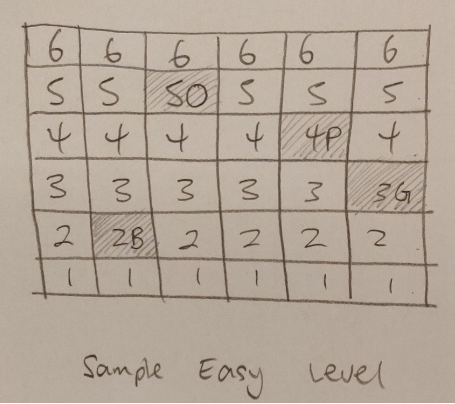 6 6 6 6 6 6
5 5 5O 5 5 5
4 4 4 4 4P 4
3 3 3 3 3 3G
2 2B 2 2 2 2
1 1 1 1 1 1
Sample Easy Level